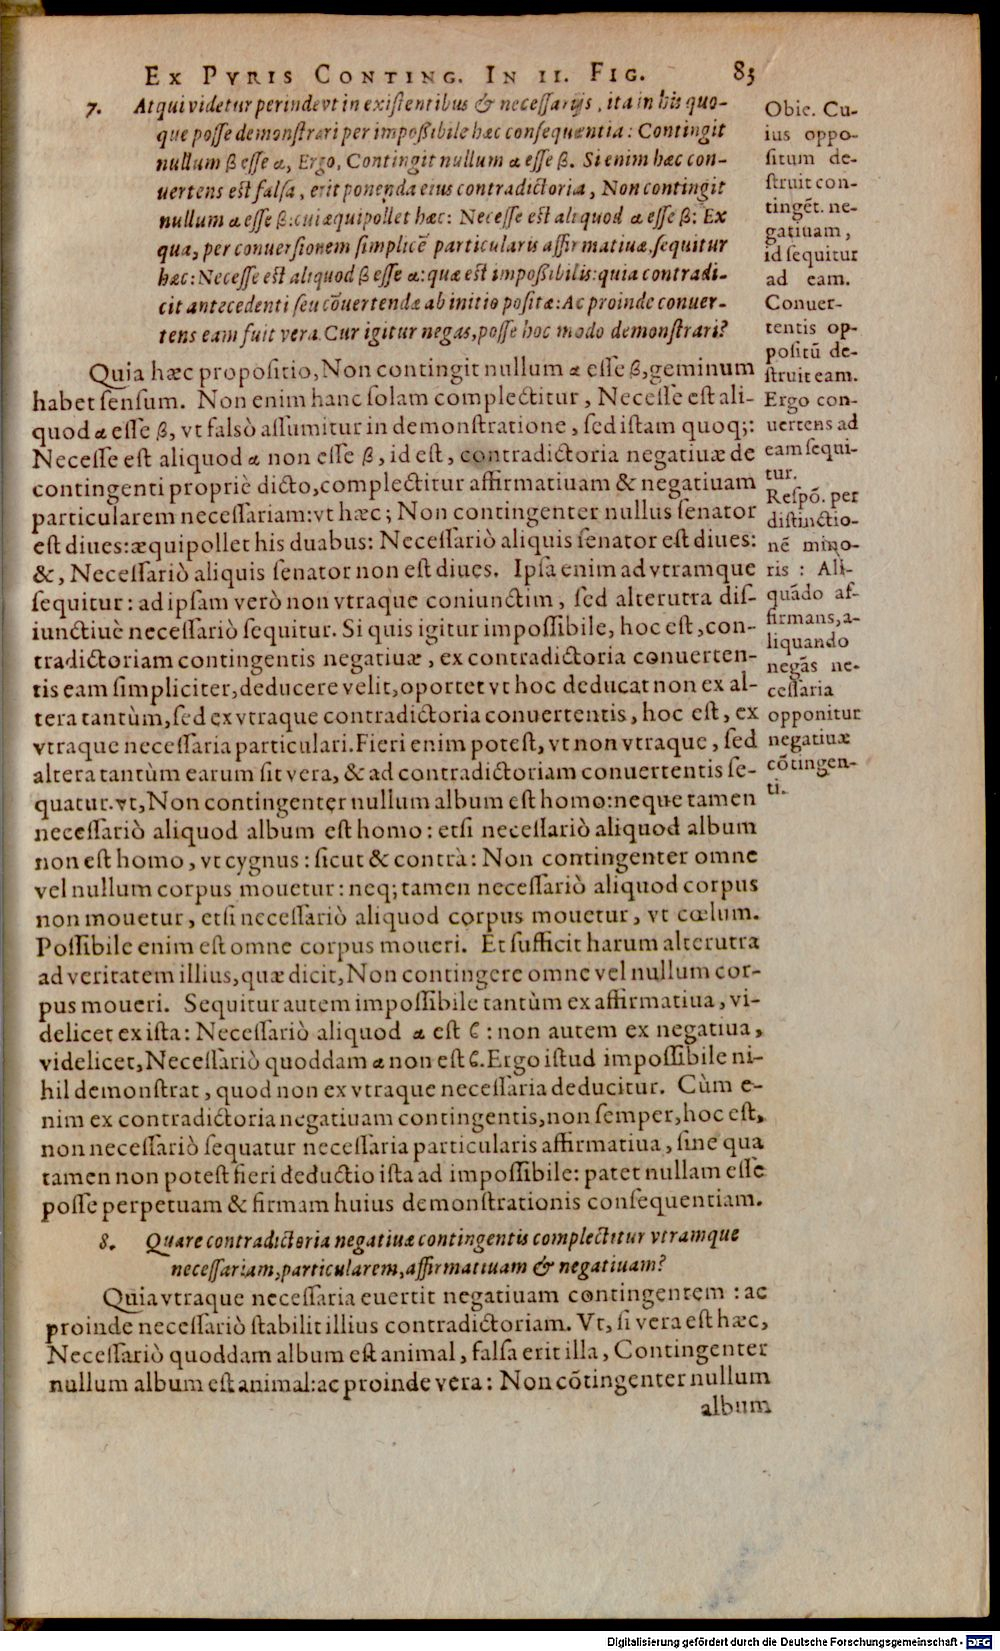 EX PVRIS CONTING. IN II. FIG. 83
7. Atqui videtur perinde vt in existentibus & necessarijs, ita in his quo-
que posse demonstrari per impoßibile hæc consequentia: Contingit
nullum β esse α, Ergo, Contingit nullum α esse β. Si enim hæc con-
uertens est falsa, erit ponenda eius contradictoria, Non contingit
nullum α esse β: cui æquipollet hæc: Necesse est aliquod α esse β: Ex
qua, per conuersionem simplicē particularis affirmatiuæ, sequitur
hæc: Necesse est aliquod β esse α: quæ est impoßibilis: quia contradi-
cit antecedenti seu cōuertendæ ab initio positæ: Ac proinde conuer-
tens eam fuit vera. Cur igitur negas, posse hoc modo demonstrari?
Quia hæc propositio, Non contingit nullum α esse β, geminum
habet sensum. Non enim hanc solam complectitur, Necesse est ali-
quod α esse β, vt falsò assumitur in demonstratione, sed istam quoq;:
Necesse est aliquod α non esse β, id est, contradictoria negatiuæ de
contingenti propriè dicto, complectitur affirmatiuam & negatiuam
particularem necessariam: vt hæc; Non contingenter nullus senator
est diues: æquipollet his duabus: Necessariò aliquis senator est diues:
&, Necessariò aliquis senator non est diues. Ipsa enim ad vtramque
sequitur: ad ipsam verò non vtraque coniunctim, sed alterutra dis-
iunctiuè necessariò sequitur. Si quis igitur impossibile, hoc est, con-
tradictoriam contingentis negatiuæ, ex contradictoria conuerten-
tis eam simpliciter, deducere velit, oportet vt hoc deducat non ex al-
tera tantùm, sed ex vtraque contradictoria conuertentis, hoc est, ex
vtraque necessaria particulari. Fieri enim potest, vt non vtraque, sed
altera tantùm earum sit vera, & ad contradictoriam conuertentis se-
quatur. vt, Non contingenter nullum album est homo: neque tamen
necessariò aliquod album est homo: etsi necessariò aliquod album
non est homo, vt cygnus: sicut & contrà: Non contingenter omne
vel nullum corpus mouetur: neq; tamen necessariò aliquod corpus
non mouetur, etsi necessariò aliquod corpus mouetur, vt cœlum.
Possibile enim est omne corpus moueri. Et sufficit harum alterutra
ad veritatem illius, quæ dicit, Non contingere omne vel nullum cor-
pus moueri. Sequitur autem impossibile tantùm ex affirmatiua, vi-
delicet ex ista: Necessariò aliquod α est ϐ: non autem ex negatiua,
videlicet, Necessariò quoddam α non est ϐ. Ergo istud impossibile ni-
hil demonstrat, quod non ex vtraque necessaria deducitur. Cùm e-
nim ex contradictoria negatiuam contingentis, non semper, hoc est,
non necessariò sequatur necessaria particularis affirmatiua, sine qua
tamen non potest fieri deductio ista ad impossibile: patet nullam esse
posse perpetuam & firmam huius demonstrationis consequentiam.
8. Quare contradictoria negatiuæ contingentis complectitur vtramque
necessariam, particularem, affirmatiuam & negatiuam?
Quia vtraque necessaria euertit negatiuam contingentem: ac
proinde necessariò stabilit illius contradictoriam. Vt, si vera est hæc,
Necessariò quoddam album est animal, falsa erit illa, Contingenter
nullum album est animal: ac proinde vera: Non cōtingenter nullum
album
Obie. Cu-
ius oppo-
situm de-
struit con-
tingēt. ne-
gatiuam,
id sequitur
ad eam.
Conuer-
tentis op-
positū de-
struit eam.
Ergo con-
uertens ad
eam sequi-
tur.
Respō. per
distinctio-
nē mino-
ris: Ali-
quādo af-
firmans, a-
liquando
negās ne-
cessaria
opponitur
negatiuæ
cōtingen-
ti.
Digitalisierung gefördert durch die Deutsche Forschungsgemeinschaft - DFG